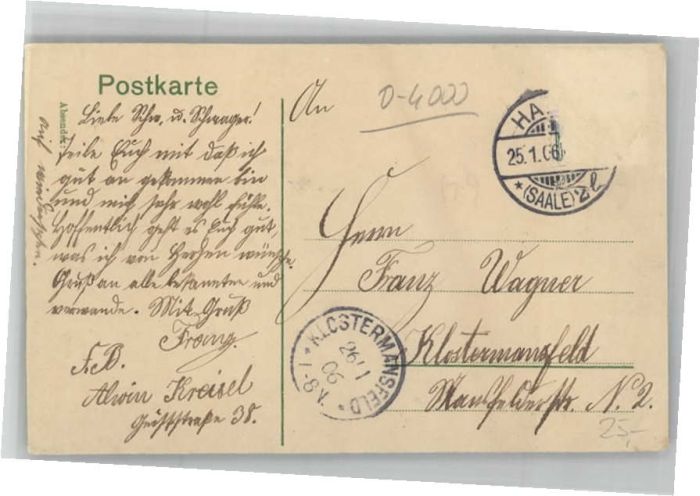 Postkarte
Absender:
Liebe Schw. u. Schwager!
Teile Euch mit daß ich
gut an gekommen bin
und mich sehr wohl fühle.
Hoffentlich geht es Euch gut,
was ich von Herzen wünsche.
Gruß an alle bekannten und
verwande. Mit Gruß
Franz.
F. B.
Alwin Kreisel
38.
Auf wiedersehn.
An
0-4000
HA
25.1.06
* (SAALE) * 2 l
Herrn
Franz Wagner
Klostermansfeld
Mansfelderstr. N. 2.
* KLOSTERMANSFELD *
26/1
06
7-8 V.
25,-